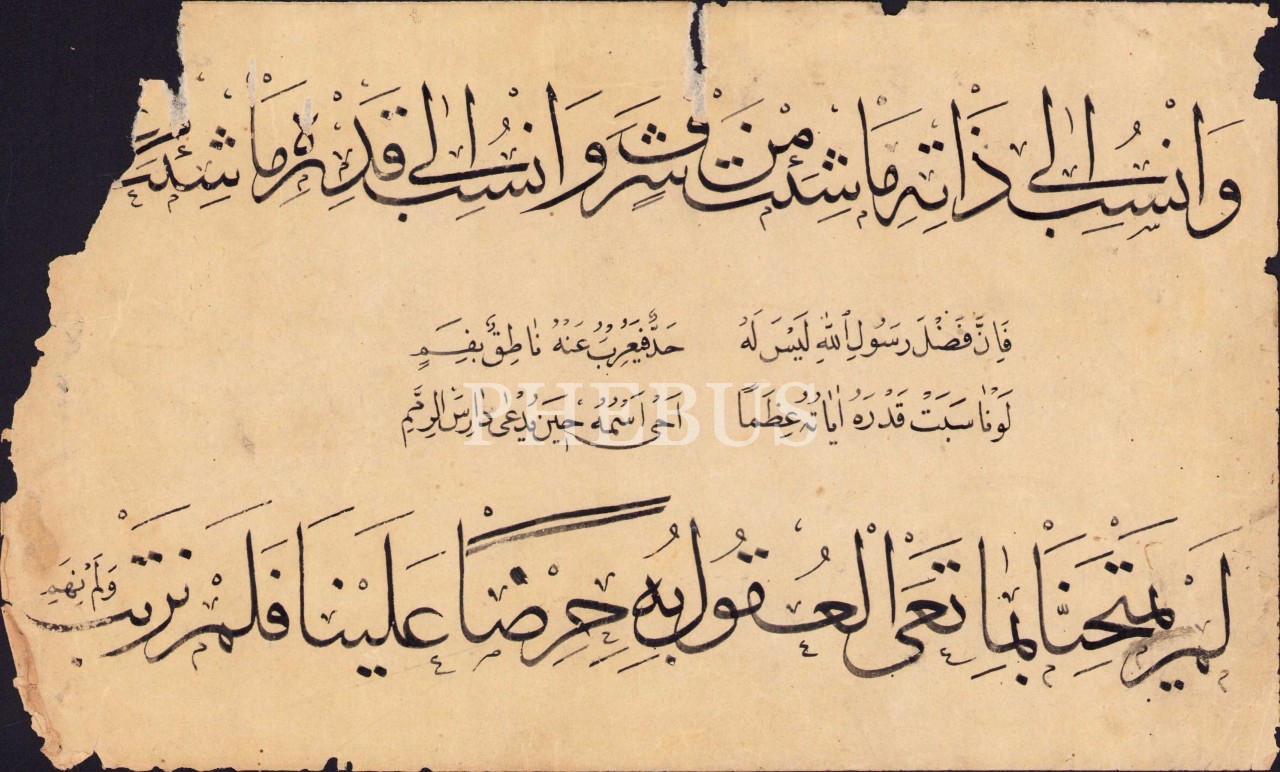 وَانْسُبْ اِلٰى ذَاتِهِ مَا شِئْتَ مِنْ شَرَفٍ وَانْسُبْ اِلٰى قَدْرِهِ مَا شِئْتَ
فَاِنَّ فَضْلَ رَسُولِ اللّٰهِ لَيْسَ لَهُ حَدٌّ فَيُعْرِبَ عَنْهُ نَاطِقٌ بِفَمٍ
لَوْ نَاسَبَتْ قَدْرَهُ اٰيَاتُهُ عِظَمًا اَحْيَى اسْمُهُ حِينَ يُدْعٰى دَارِسَ الرِّمَمِ
PHEBUS
لَمْ يَمْتَحِنَّا بِمَا تَعْيَى الْعُقُولُ بِهِ حِرْصًا عَلَيْنَا فَلَمْ نَرْتَبْ وَلَمْ نَهِمِ